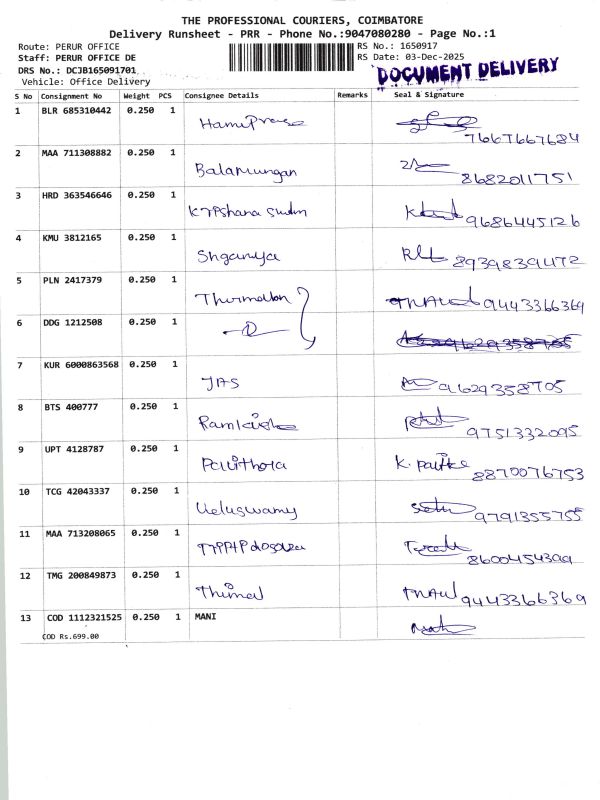 THE PROFESSIONAL COURIERS, COIMBATORE
Delivery Runsheet - PRR - Phone No.:9047080280 - Page No.:1
Route: PERUR OFFICE RS No.: 1650917
Staff: PERUR OFFICE DE RS Date: 03-Dec-2025
DRS No.: DCJB165091701 DOCUMENT DELIVERY
Vehicle: Office Delivery
S No Consignment No Weight PCS Consignee Details Remarks Seal & Signature
1 BLR 685310442 0.250 1
7667667684
2 MAA 711308882 0.250 1 Balamurugan
8682011751
3 HRD 363546646 0.250 1 9686445126
4 KMU 3812165 0.250 1 8939839472
5 PLN 2417379 0.250 1 TNAU 9443366369
6 DDG 1212508 0.250 1
7 KUR 6000863568 0.250 1 JAS 9629358705
8 BTS 400777 0.250 1
9751332095
9 UPT 4128787 0.250 1 Pavithora K.
8870076753
10 TCG 42043337 0.250 1 Veluswamy 9791355755
11 MAA 713208065 0.250 1
12 TMG 200849873 0.250 1 Thimal TNAU 9443366369
13 COD 1112321525 0.250 1 MANI
COD Rs.699.00